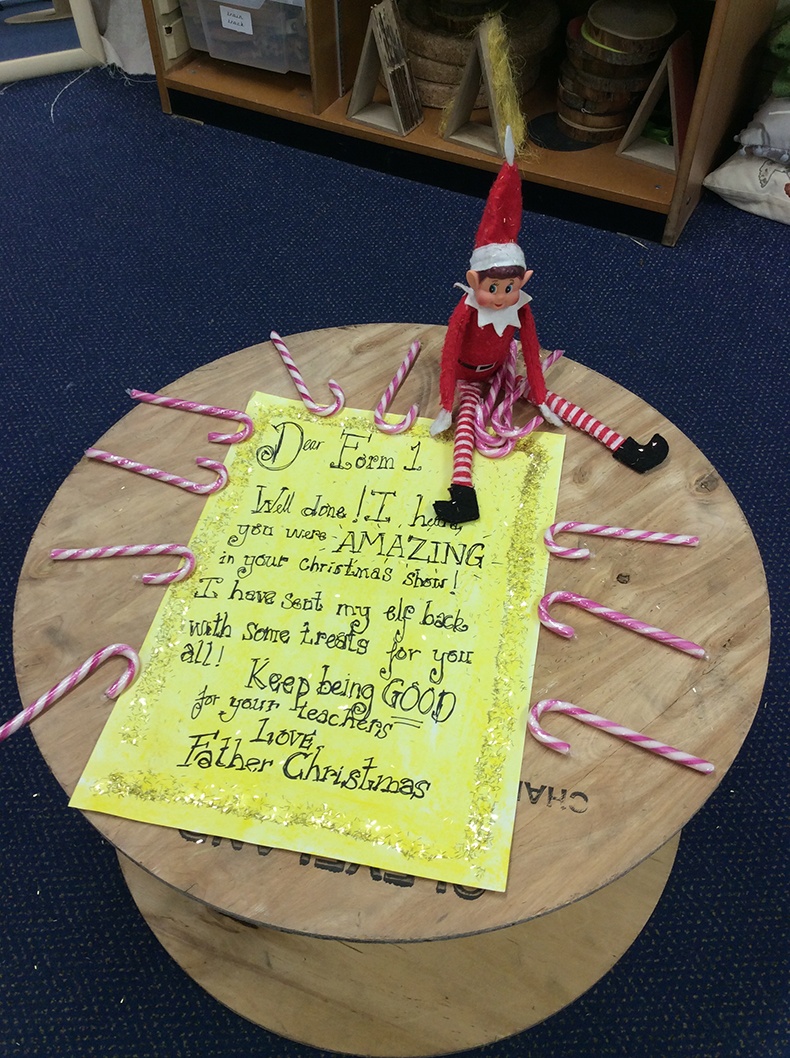 train
track
Dear Form 1
Well done! I hear
you were AMAZING
in your christmas show!
I have sent my elf back
with some treats for you
all! Keep being GOOD
for your teachers
Love,
Father Christmas
CLEVELAND